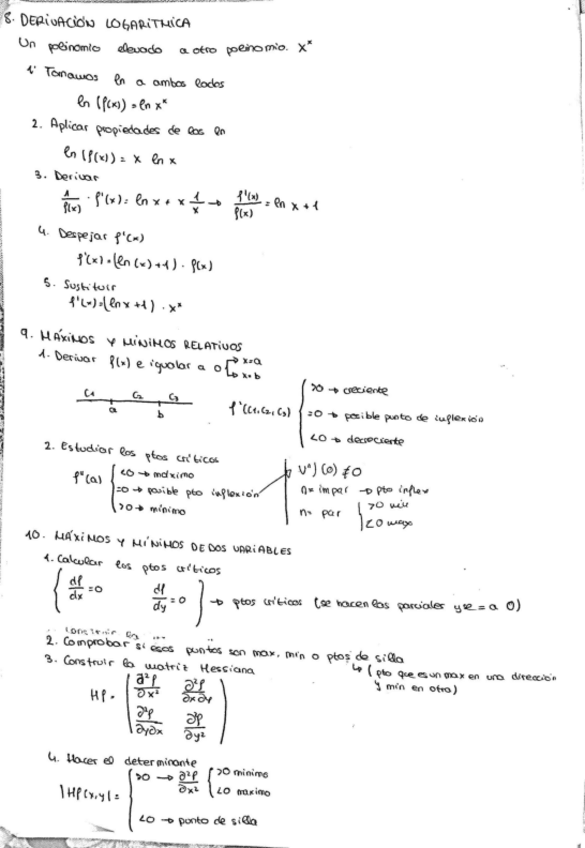 8. DERIVACIÓN LOGARÍTMICA
Un polinomio elevado a otro polinomio. xˣ
1º Tomamos ln a ambos lados
ln (f(x)) = ln xˣ
2. Aplicar propiedades de los ln
ln (f(x)) = x ln x
3. Derivar
1/f(x) · f'(x) = ln x + x 1/x → f'(x)/f(x) = ln x + 1
4. Despejar f'(x)
f'(x) = (ln (x) + 1) · f(x)
5. Sustituir
f'(x) = (ln x + 1) · xˣ
9. MÁXIMOS Y MÍNIMOS RELATIVOS
1. Derivar f(x) e igualar a 0 → x=a
→ x=b
C1 C2 C3
a b
f'(C1, C2, C3) { >0 → creciente
=0 → posible punto de inflexión
<0 → decreciente
2. Estudiar los ptos críticos
f''(a) { <0 → máximo
=0 → posible pto inflexión
>0 → mínimo
(0) ≠ 0
n = impar → pto inflex
n = par { >0 min
<0 max
10. MÁXIMOS Y MÍNIMOS DE DOS VARIABLES
1. Calcular los ptos críticos
{ df/dx = 0 df/dy = 0 } → ptos críticos (se hacen las parciales y se = a 0)
2. Comprobar si esos puntos son max, min o ptos de silla
↳ (pto que es un max en una dirección y min en otra)
3. Construir la matriz Hessiana
Hf = ( ∂²f/∂x² ∂²f/∂x∂y
∂²f/∂y∂x ∂²f/∂y² )
4. Hacer el determinante
|Hf(x,y)| = { >0 → ∂²f/∂x² { >0 mínimo
<0 maximo
<0 → punto de silla